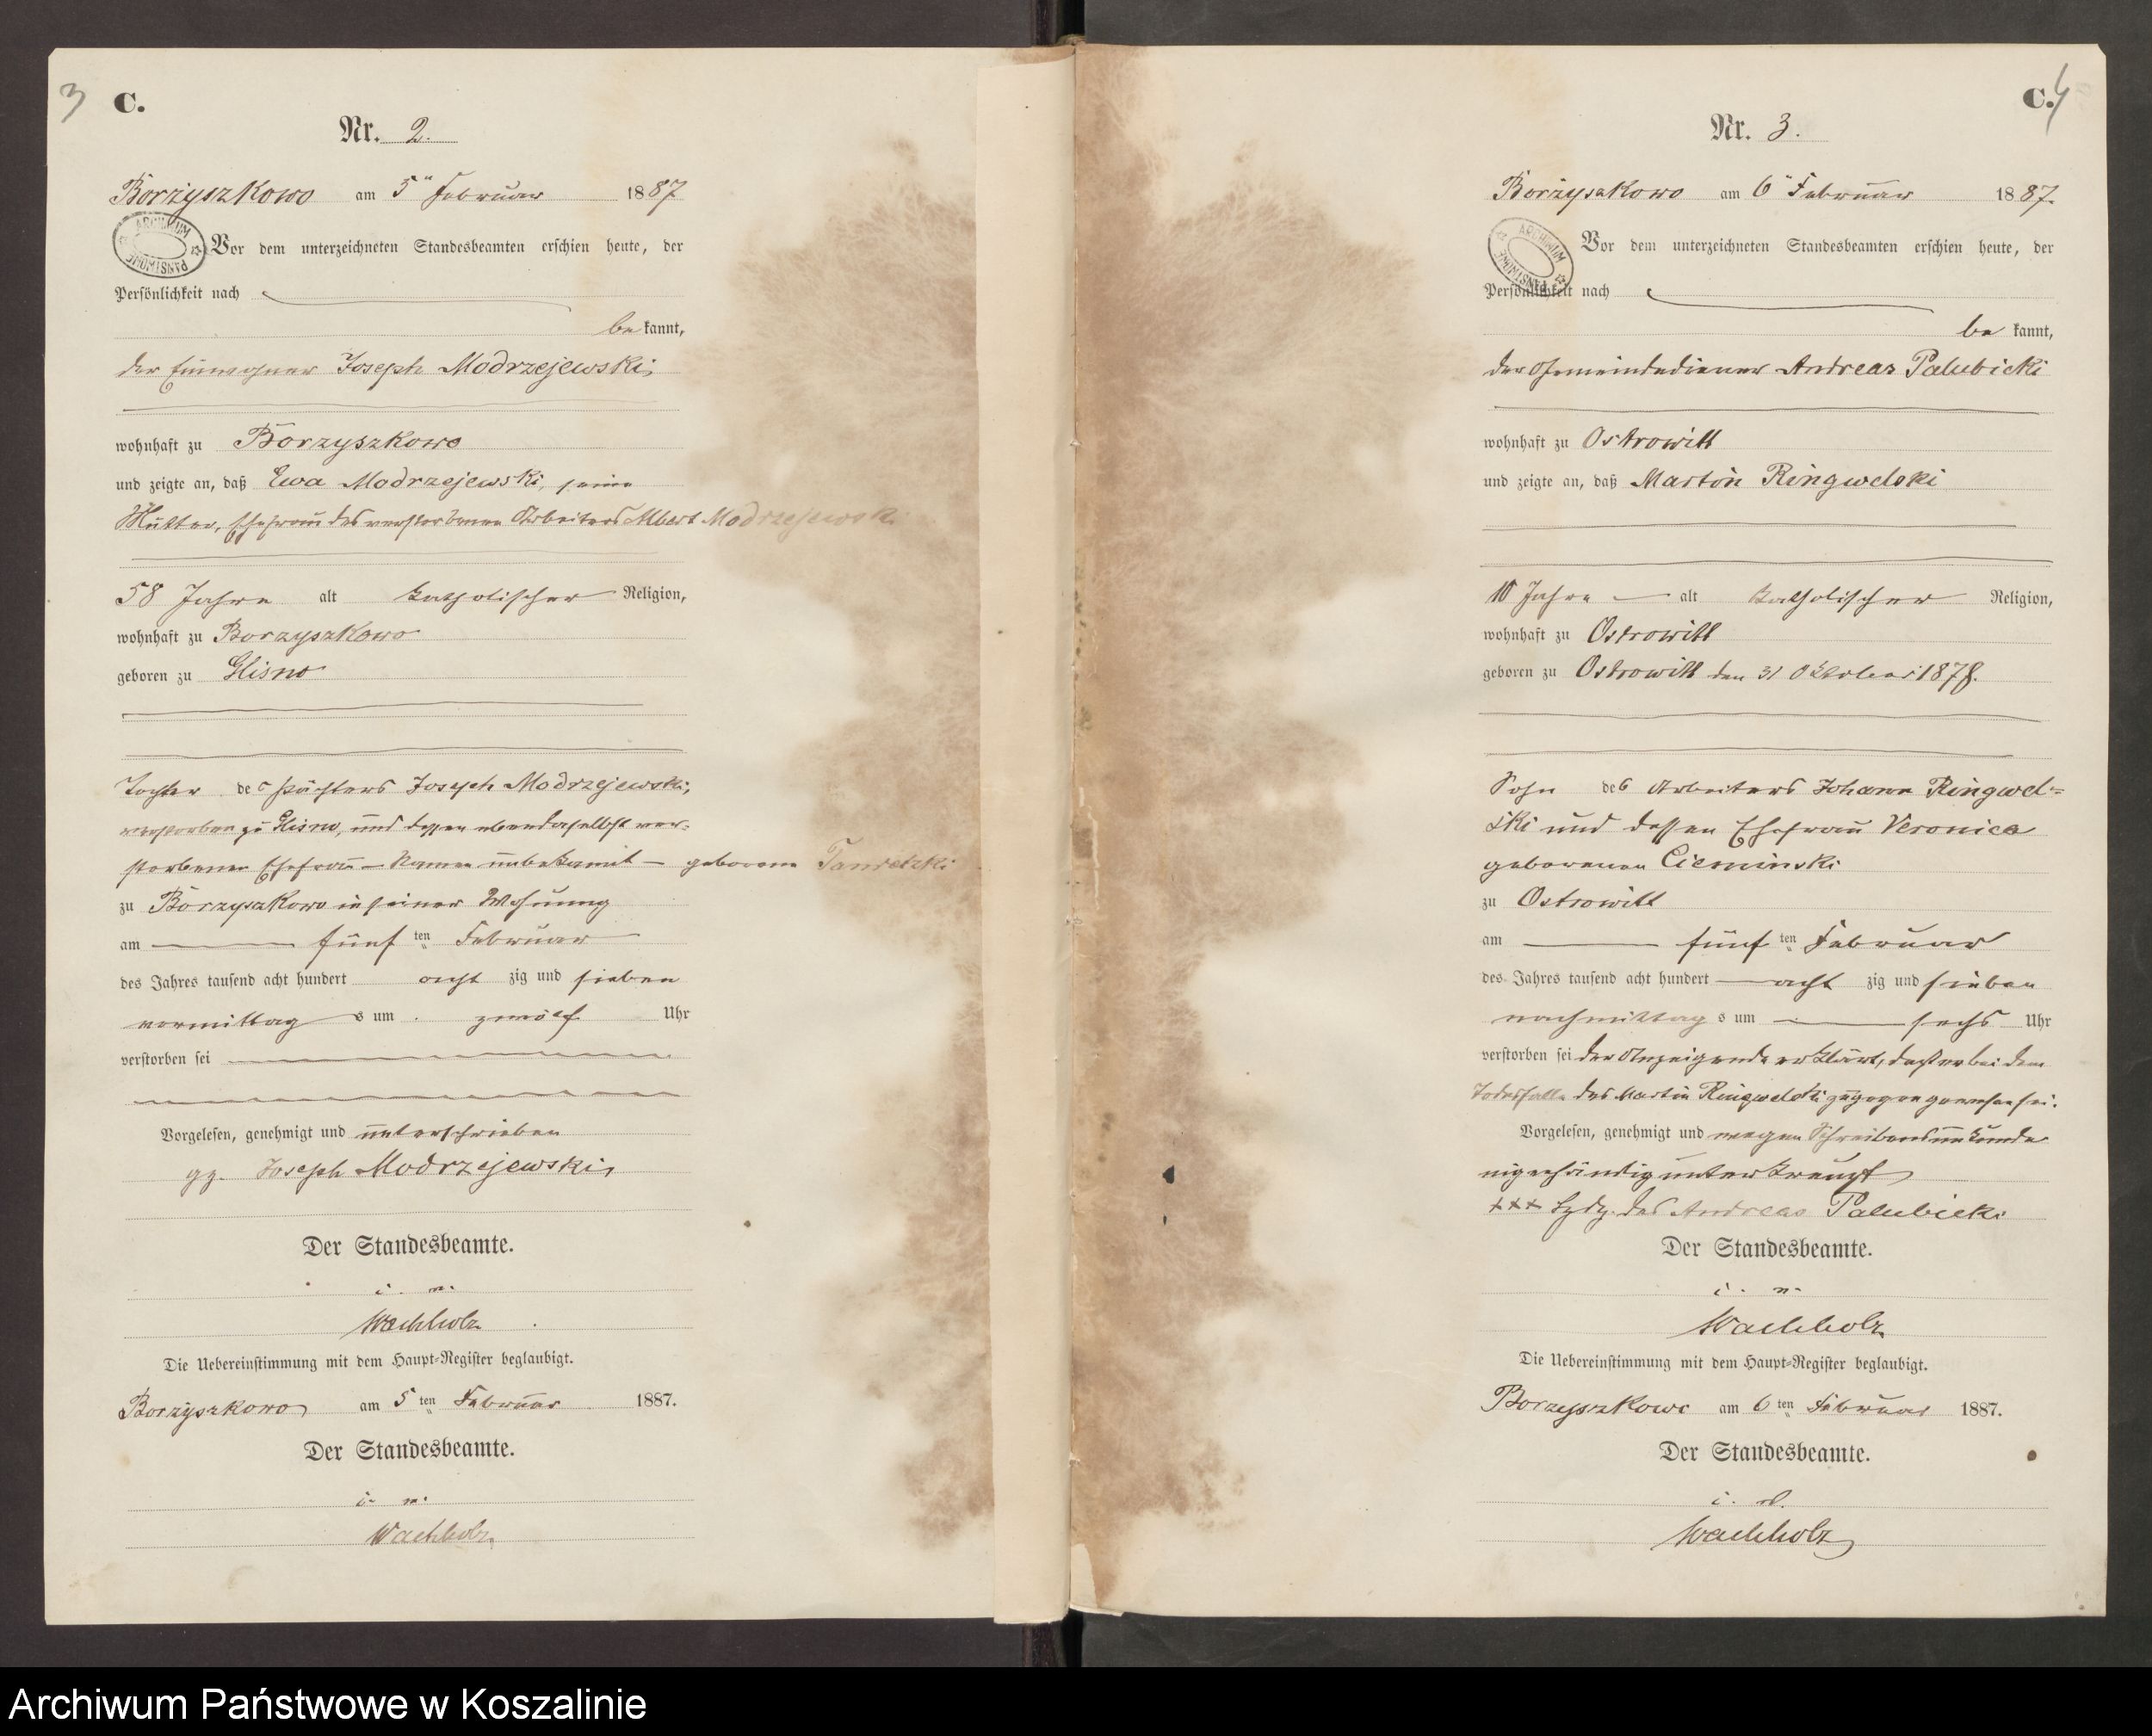 3
C.
Nr. 2.
Borzyszkowo am 5" Februar 1887
ARCHIWUM PAŃSTWOWE
Vor dem unterzeichneten Standesbeamten erschien heute, der
Persönlichkeit nach
be kannt,
der Einwohner Joseph Modrzejewski,
wohnhaft zu Borzyszkowo
und zeigte an, daß Ewa Modrzejewski, seine
Mutter, Ehefrau des verstorbenen Arbeiters Albert Modrzejewski
58 Jahre alt katholischer Religion,
wohnhaft zu Borzyszkowo
geboren zu Glisno
Tochter des Pächters Joseph Modrzejewski,
verstorben zu Glisno, und dessen ebendaselbst ver-
storbenen Ehefrau – Namen unbekannt – geborene
zu Borzyszkowo in seiner Wohnung
am fünf ten Februar
des Jahres tausend acht hundert acht zig und sieben
vormittag s um zwölf Uhr
verstorben sei
Vorgelesen, genehmigt und unterschrieben
gz. Joseph Modrzejewski,
Der Standesbeamte.
Wachholz
Die Uebereinstimmung mit dem Haupt=Register beglaubigt.
Borzyszkowo am 5 ten Februar 1887.
Der Standesbeamte.
Wachholz
C.
4
Nr. 3.
Borzyszkowo am 6" Februar 1887.
ARCHIWUM PAŃSTWOWE
Vor dem unterzeichneten Standesbeamten erschien heute, der
Persönlichkeit nach
be kannt,
der Gemeindediener Andreas Palubicki
wohnhaft zu Ostrowitt
und zeigte an, daß Martin Ringwelski
10 Jahre alt katholischer Religion,
wohnhaft zu Ostrowitt
geboren zu Ostrowitt den 31 Oktober 1878.
Sohn des Arbeiters Johann Ringwel=
ski und dessen Ehefrau Veronica
geborenen Cieminski
zu Ostrowitt
am fünf ten Februar
des Jahres tausend acht hundert acht zig und sieben
nachmittag s um sechs Uhr
verstorben sei der Anzeigende erklärt, daß er bei dem
Todesfalle des Martin Ringwelski zugegen gewesen sei.
Vorgelesen, genehmigt und wegen Schreibensunkunde
eigenhändig unterkreuzt
+++ Hdzg. des Andreas Palubicki
Der Standesbeamte.
Wachholz
Die Uebereinstimmung mit dem Haupt=Register beglaubigt.
Borzyszkowo am 6 ten Februar 1887.
Der Standesbeamte.
Wachholz
Archiwum Państwowe w Koszalinie